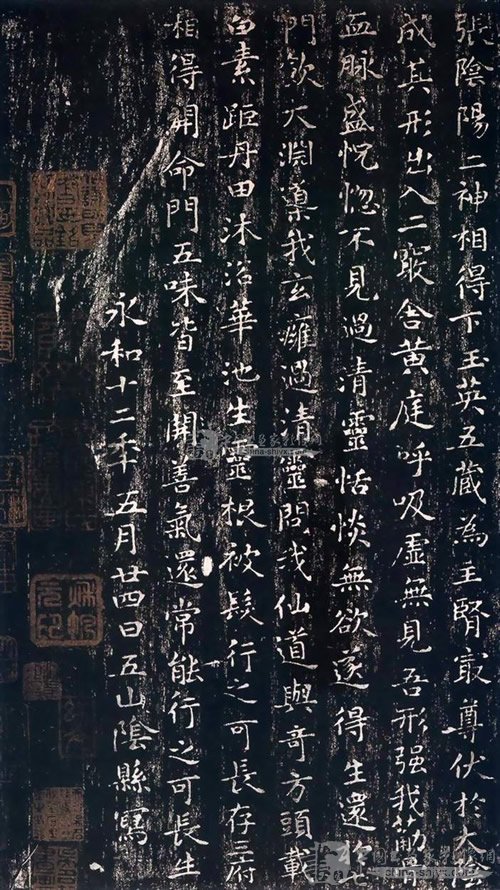 張陰陽二神相得下玉英五藏為主腎最尊伏於大陰
成其形出入二竅舍黄庭呼吸虛無見吾形强我筋骨
血脉盛恍惚不見過清靈恬惔無欲遂得生還於七
門飲大淵導我玄癰過清靈問我仙道與奇方頭載
白素距丹田沐浴華池生靈根被髮行之可長存三府
相得開命門五味皆至開善氣還常能行之可長生
永和十二年五月廿四日五山陰縣寫